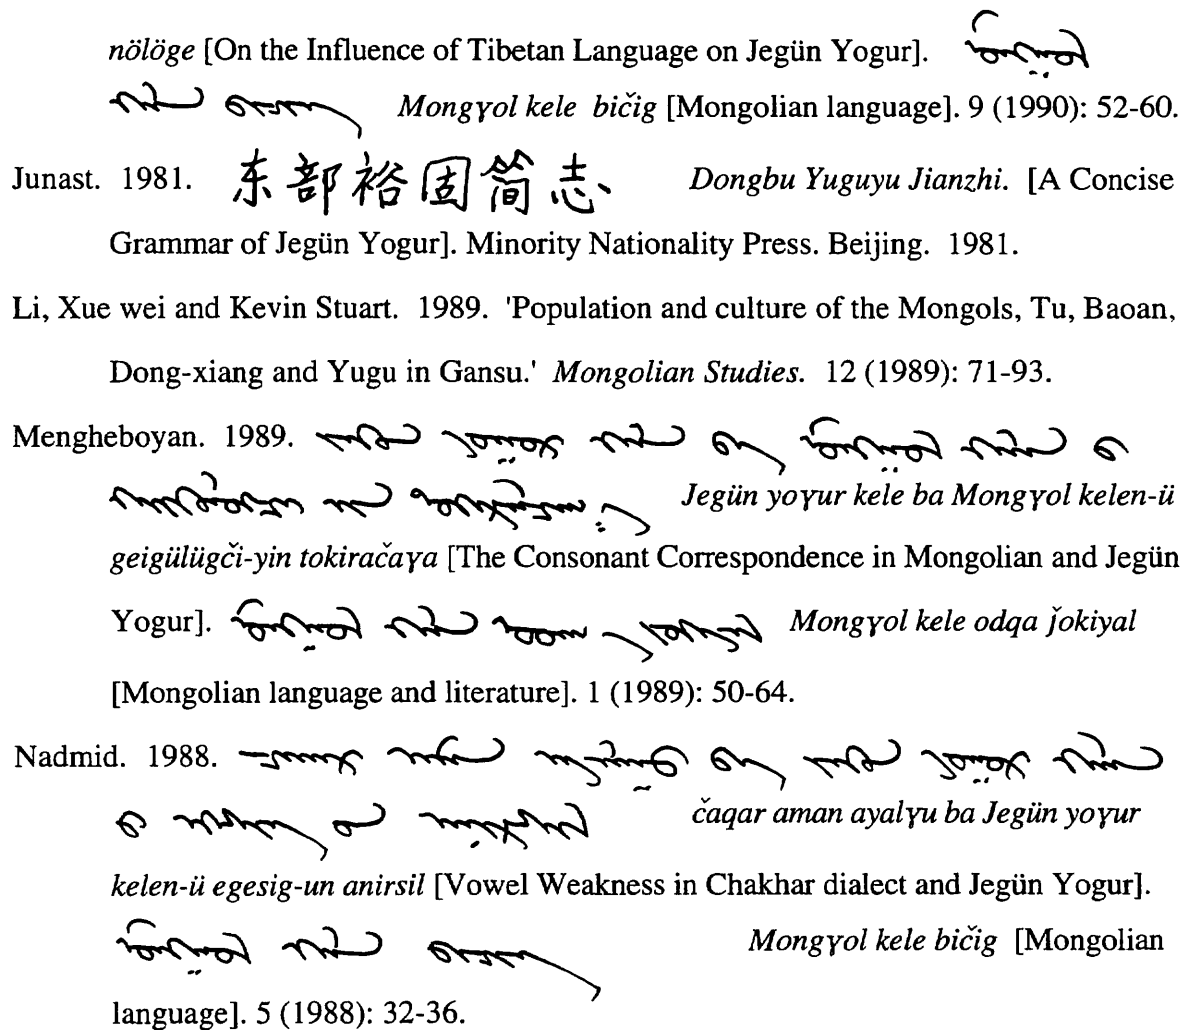 nölöge [On the Influence of Tibetan Language on Jegün Yogur]. ᠮᠣᠩᠭᠣᠯ
ᠬᠡᠯᠡ ᠪᠢᠴᠢᠭ Mongγol kele bičig [Mongolian language]. 9 (1990): 52-60.
Junast. 1981. 东部裕固简志、 Dongbu Yuguyu Jianzhi. [A Concise
Grammar of Jegün Yogur]. Minority Nationality Press. Beijing. 1981.
Li, Xue wei and Kevin Stuart. 1989. 'Population and culture of the Mongols, Tu, Baoan,
Dong-xiang and Yugu in Gansu.' Mongolian Studies. 12 (1989): 71-93.
Mengheboyan. 1989. ᠵᠡᠭᠦᠨ ᠶᠣᠭᠤᠷ ᠬᠡᠯᠡ ᠪᠠ ᠮᠣᠩᠭᠣᠯ ᠬᠡᠯᠡᠨ ᠦ
ᠭᠡᠶᠢᠭᠦᠯᠦᠭᠴᠢ ᠶᠢᠨ ᠲᠣᠬᠢᠷᠠᠴᠠᠭ᠎ᠠ Jegün yoγur kele ba Mongγol kelen-ü
geigülügči-yin tokiračaγa [The Consonant Correspondence in Mongolian and Jegün
Yogur]. ᠮᠣᠩᠭᠣᠯ ᠬᠡᠯᠡ ᠤᠳᠬ᠎ᠠ ᠵᠣᠬᠢᠶᠠᠯ Mongγol kele odqa ǰokiyal
[Mongolian language and literature]. 1 (1989): 50-64.
Nadmid. 1988. ᠴᠠᠬᠠᠷ ᠠᠮᠠᠨ ᠠᠶᠠᠯᠭᠤ ᠪᠠ ᠵᠡᠭᠦᠨ ᠶᠣᠭᠤᠷ ᠬᠡᠯᠡᠨ
ᠦ ᠡᠭᠡᠰᠢᠭ ᠦᠨ ᠠᠨᠢᠷᠰᠢᠯ čaqar aman ayalγu ba Jegün yoγur
kelen-ü egesig-un anirsil [Vowel Weakness in Chakhar dialect and Jegün Yogur].
ᠮᠣᠩᠭᠣᠯ ᠬᠡᠯᠡ ᠪᠢᠴᠢᠭ Mongγol kele bičig [Mongolian
language]. 5 (1988): 32-36.